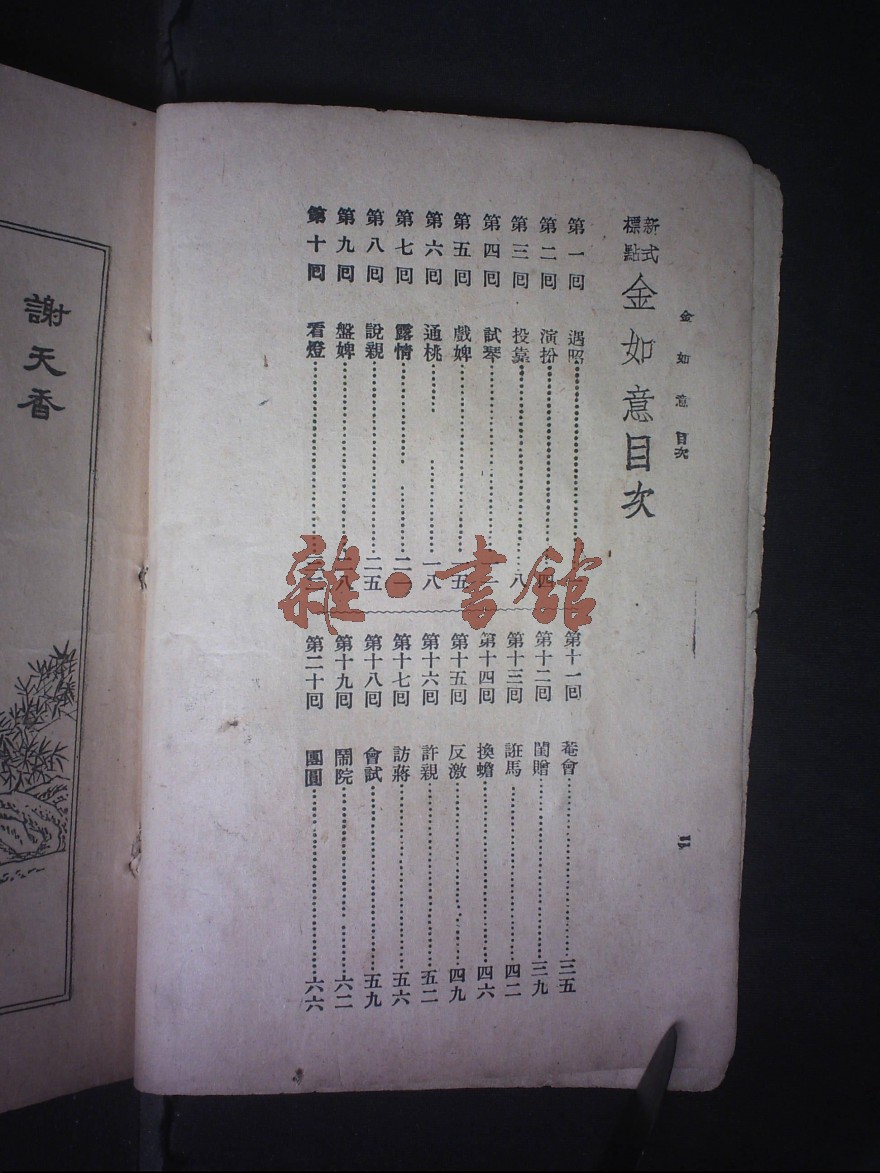 金如意 目次
新式標點 金如意目次
第一回 遇照
第二回 演扮 四
第三回 投靠 八
第四回 試琴
第五回 戲婢 五
第六回 通桃 一八
第七回 露情 二一
第八回 說親 二五
第九回 盤婢 二八
第十回 看燈
第十一回 菴會 三五
第十二回 閨贈 三九
第十三回 誑馬 四二
第十四回 換蟾 四六
第十五回 反激 四九
第十六回 許親 五二
第十七回 訪蔣 五六
第十八回 會試 五九
第十九回 鬧院 六二
第二十回 團圓 六六
謝天香
雜·書館